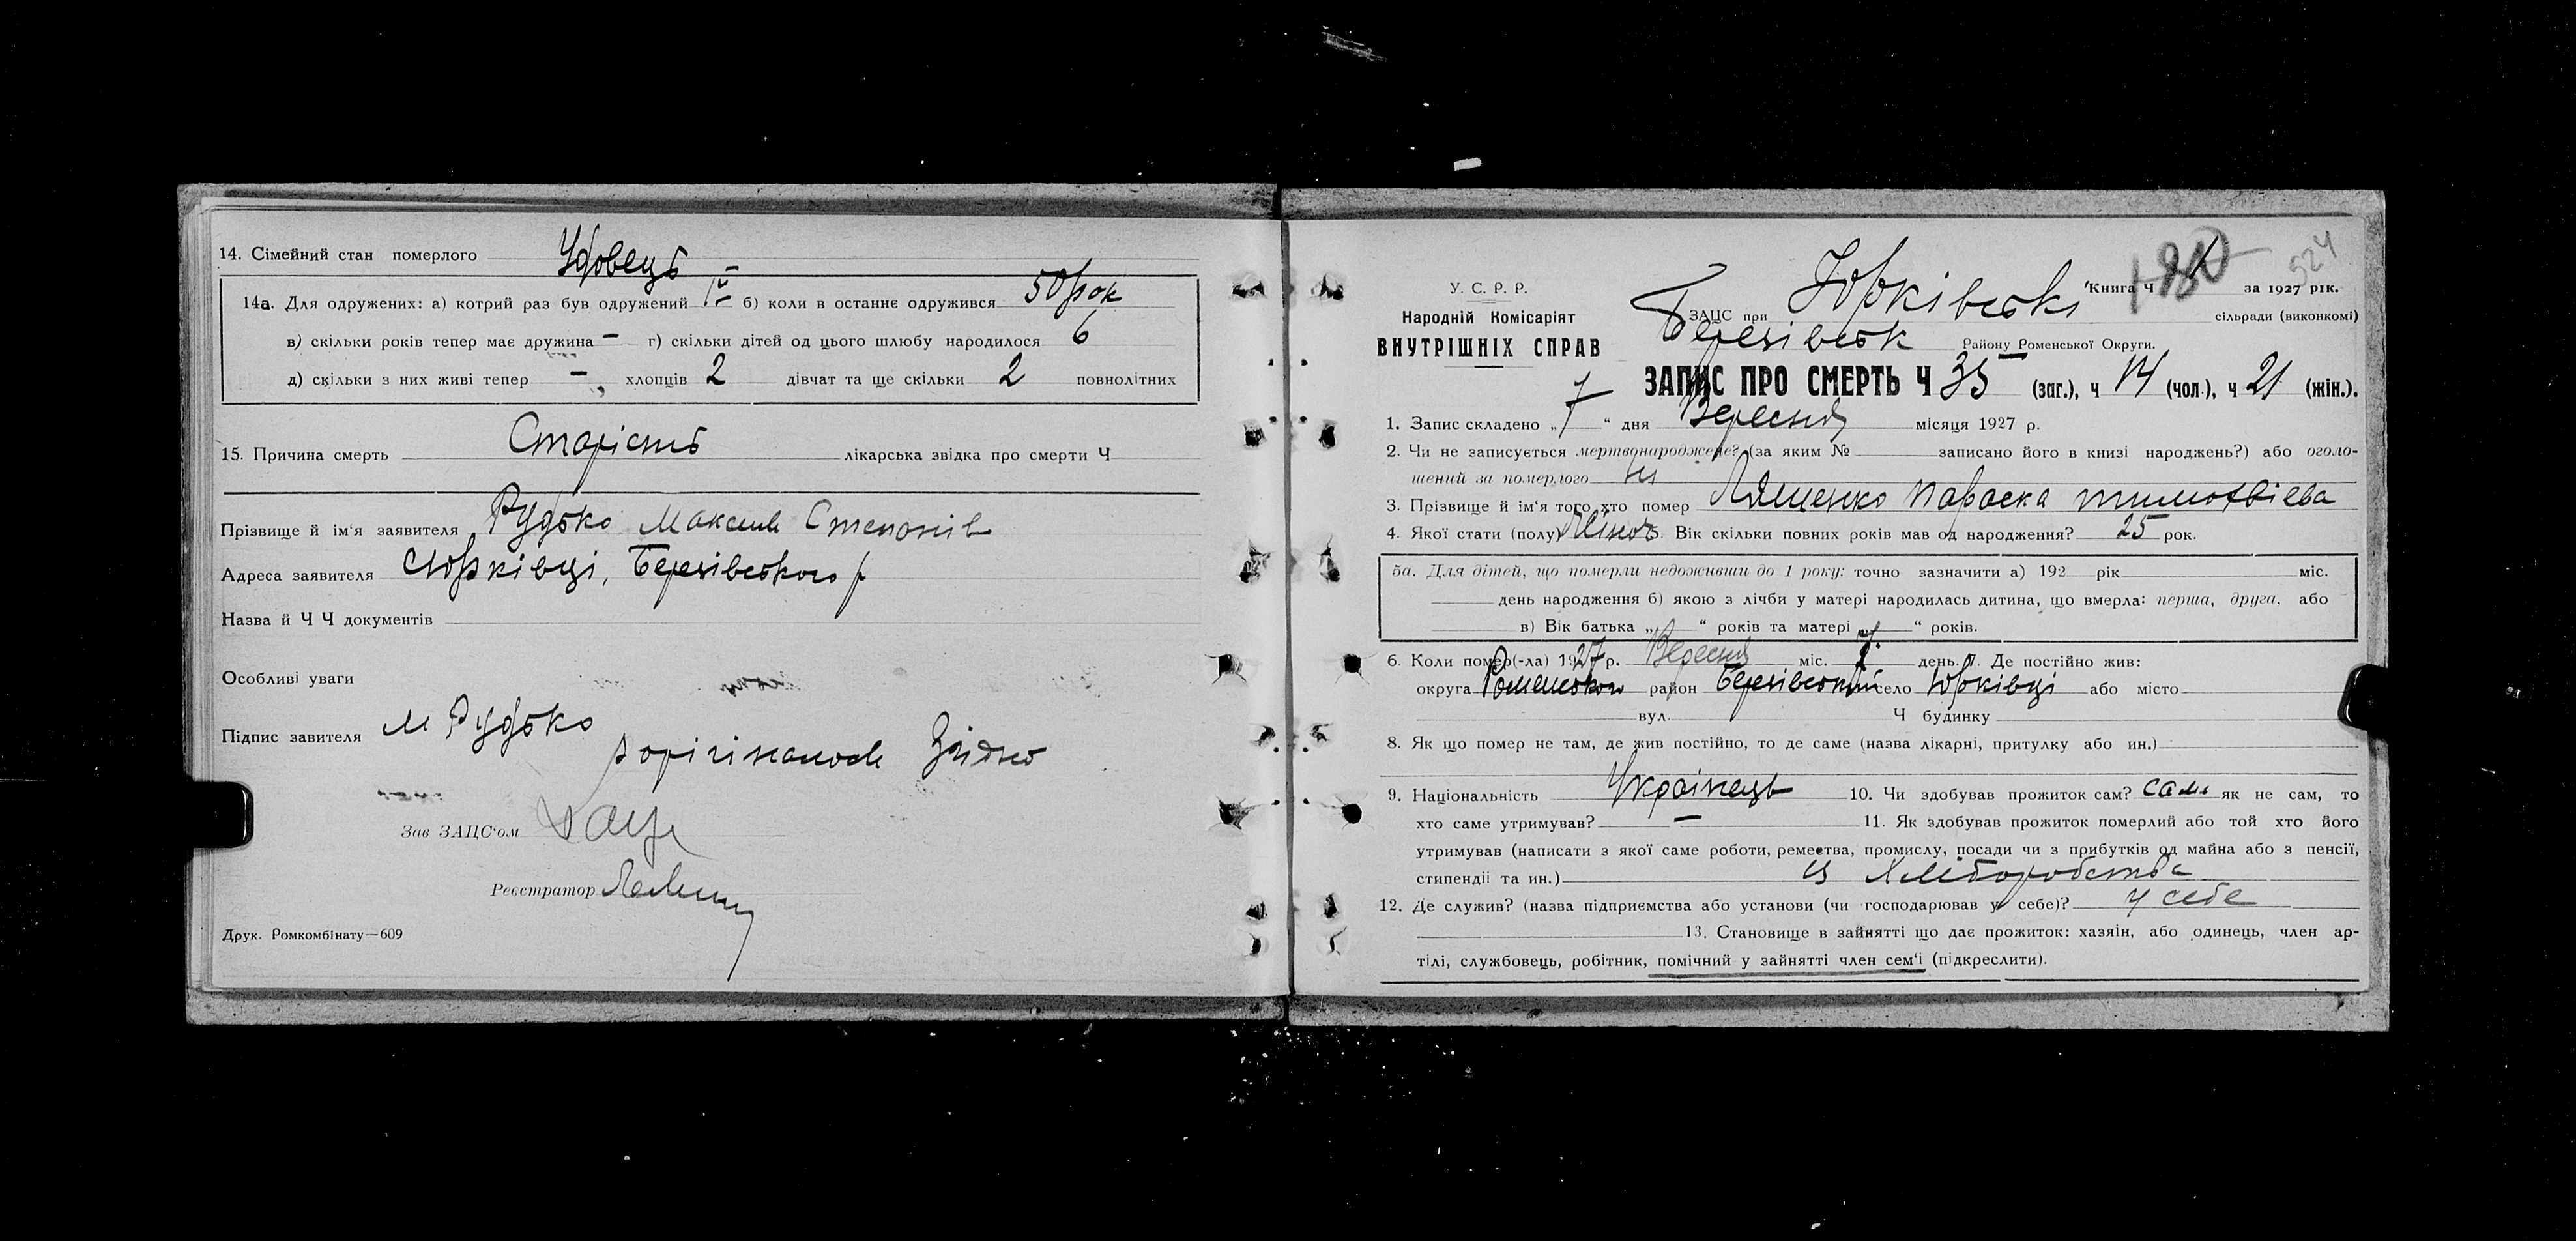 14. Сімейний стан померлого Удовець
14а. Для одружених: а) котрий раз був одружений б) коли в останнє одружився 50 рок
в) скільки років тепер має дружина — г) скільки дітей од цього шлюбу народилося 6
д) скільки з них живі тепер —, хлопців 2 дівчат та ще скільки 2 повнолітних
15. Причина смерть Старість лікарська звідка про смерти Ч
Прізвище й ім'я заявителя Рудько Максим Степанів
Адреса заявителя Юрківці, Березівського р
Назва й Ч Ч документів
Особливі уваги
Підпис завителя М Рудько
З оригіналом Згідно
Зав ЗАЦС'ом
Реєстратор
Друк. Ромкомбінату—609
524
У. С. Р. Р.
Народній Комісаріят
ВНУТРІШНІХ СПРАВ
Книга Ч за 1927 рік.
ЗАЦС при Юрківські сільради (виконкомі)
Березівськ Району Роменської Округи.
ЗАПИС ПРО СМЕРТЬ Ч 35 (заг.), ч 14 (чол.), ч 21 (жін.).
1. Запис складено „7“ дня Вересня місяця 1927 р.
2. Чи не записується мертвонароджене? (за яким № записано його в книзі народжень?) або оголо-
шений за померлого Ні
3. Прізвище й ім'я того, хто помер Лященко Параска Тимофвієва
4. Якої стати (полу) Жіноч. Вік скільки повних років мав од народження? 25 рок.
5а. Для дітей, що померли недоживши до 1 року: точно зазначити а) 192 рік міс.
день народження б) якою з лічби у матері народилась дитина, що вмерла: перша, друга, або
в) Вік батька „ “ років та матері „ “ років.
6. Коли помер(-ла) 1927 р. Вересня міс. день. 7. Де постійно жив:
округа Роменського район Березівський село Юрківці або місто
вул. Ч будинку
8. Як що помер не там, де жив постійно, то де саме (назва лікарні, притулку або ин.)
9. Національність Українець 10. Чи здобував прожиток сам? сам як не сам, то
хто саме утримував? — 11. Як здобував прожиток померлий або той хто його
утримував (написати з якої саме роботи, ремества, промислу, посади чи з прибутків од майна або з пенсії,
стипендії та ин.) Із Хліборобства
12. Де служив? (назва підприємства або установи (чи господарював у себе)? У себе
13. Становище в зайнятті що дає прожиток: хазяїн, або одинець, член ар-
тілі, службовець, робітник, помічний у зайнятті член сем'ї (підкреслити).